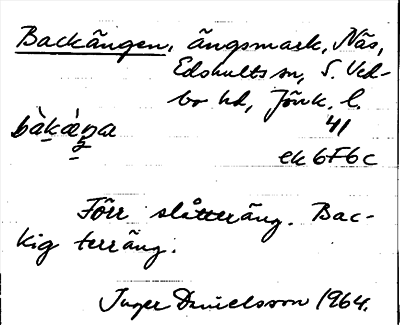 Backängen, ängsmark, Näs,
Edshults sn, S. Ved-
bo hd, Jönk. l.
41
bàkæ̀ŋa
ek 6F6c
Förr slåtteräng. Bac-
kig terräng.
Inger Danielsson 1964.